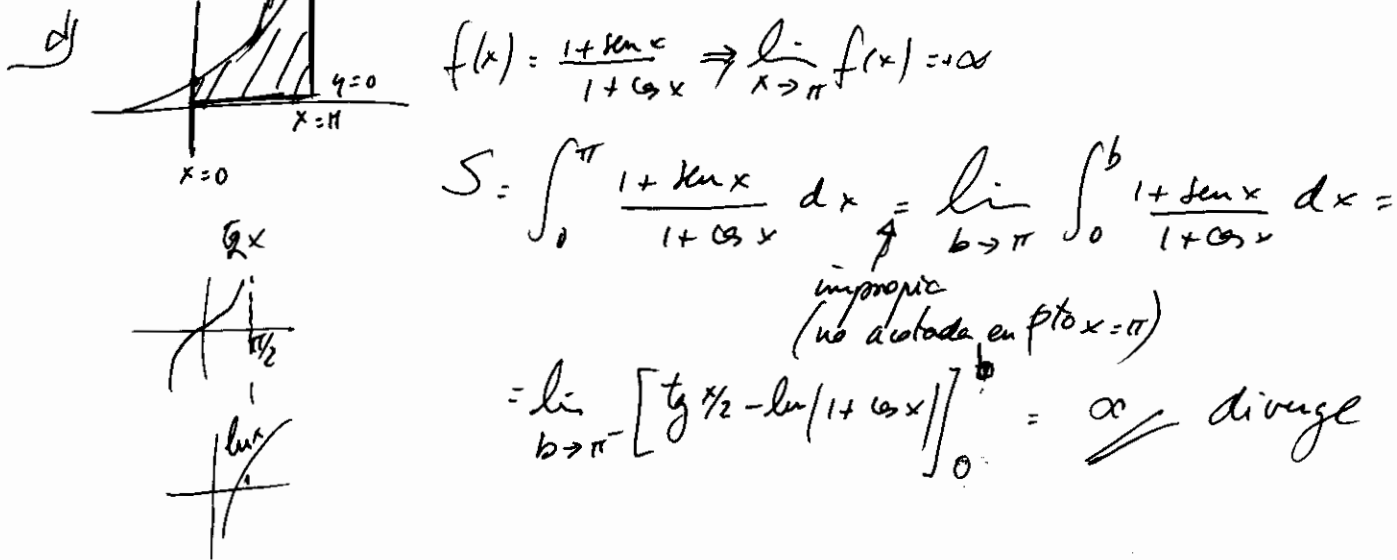 d)
y=0
x=π
x=0
f(x) = (1+sen x)/(1+cos x) ⇒ lim x→π f(x) = +∞
S = ∫₀^π (1+sen x)/(1+cos x) dx = lim b→π ∫₀^b (1+sen x)/(1+cos x) dx =
impropia
(no acotada en pto x=π)
tg x
π/2
= lim b→π⁻ [tg x/2 - ln|1+cos x|]₀^b = ∞ diverge
ln x
1